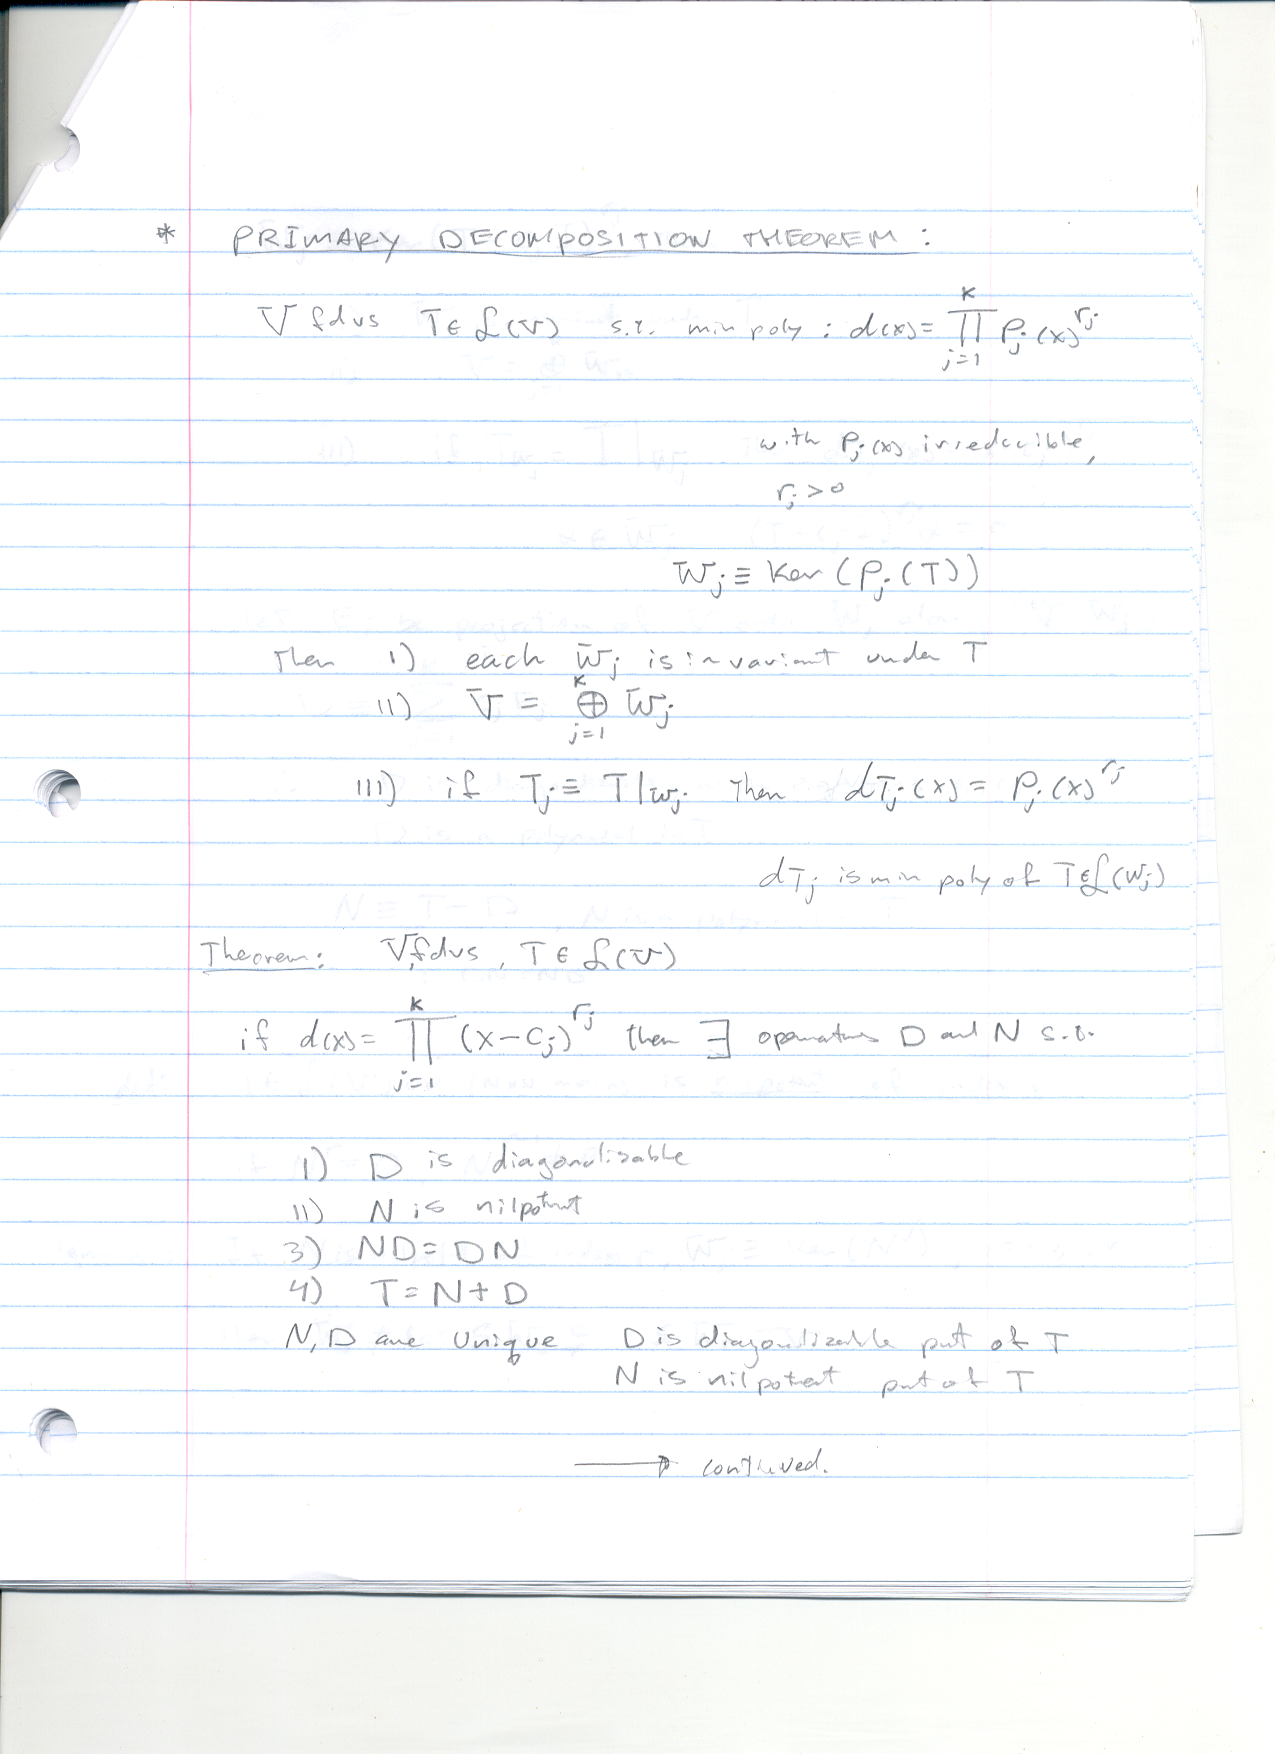 * PRIMARY DECOMPOSITION THEOREM :
V fdvs T ∈ L(V) s.t. min poly : d(x) = ∏_{j=1}^{K} P_j(x)^{r_j}
with P_j(x) irreducible,
r_j > 0
W_j ≡ Ker (P_j(T))
Then 1) each W_j is invariant under T
11) V = ⊕_{j=1}^{K} W_j
111) if T_j ≡ T|_{W_j} Then d_{T_j}(x) = P_j(x)^{r_j}
d_{T_j} is min poly of T ∈ L(W_j)
Theorem: V, fdvs, T ∈ L(V)
if d(x) = ∏_{j=1}^{K} (x - C_j)^{r_j} then ∃ operators D and N s.t.
1) D is diagonalizable
11) N is nilpotent
3) ND = DN
4) T = N + D
N, D are Unique D is diagonalizable part of T
N is nilpotent part of T
→ continued.